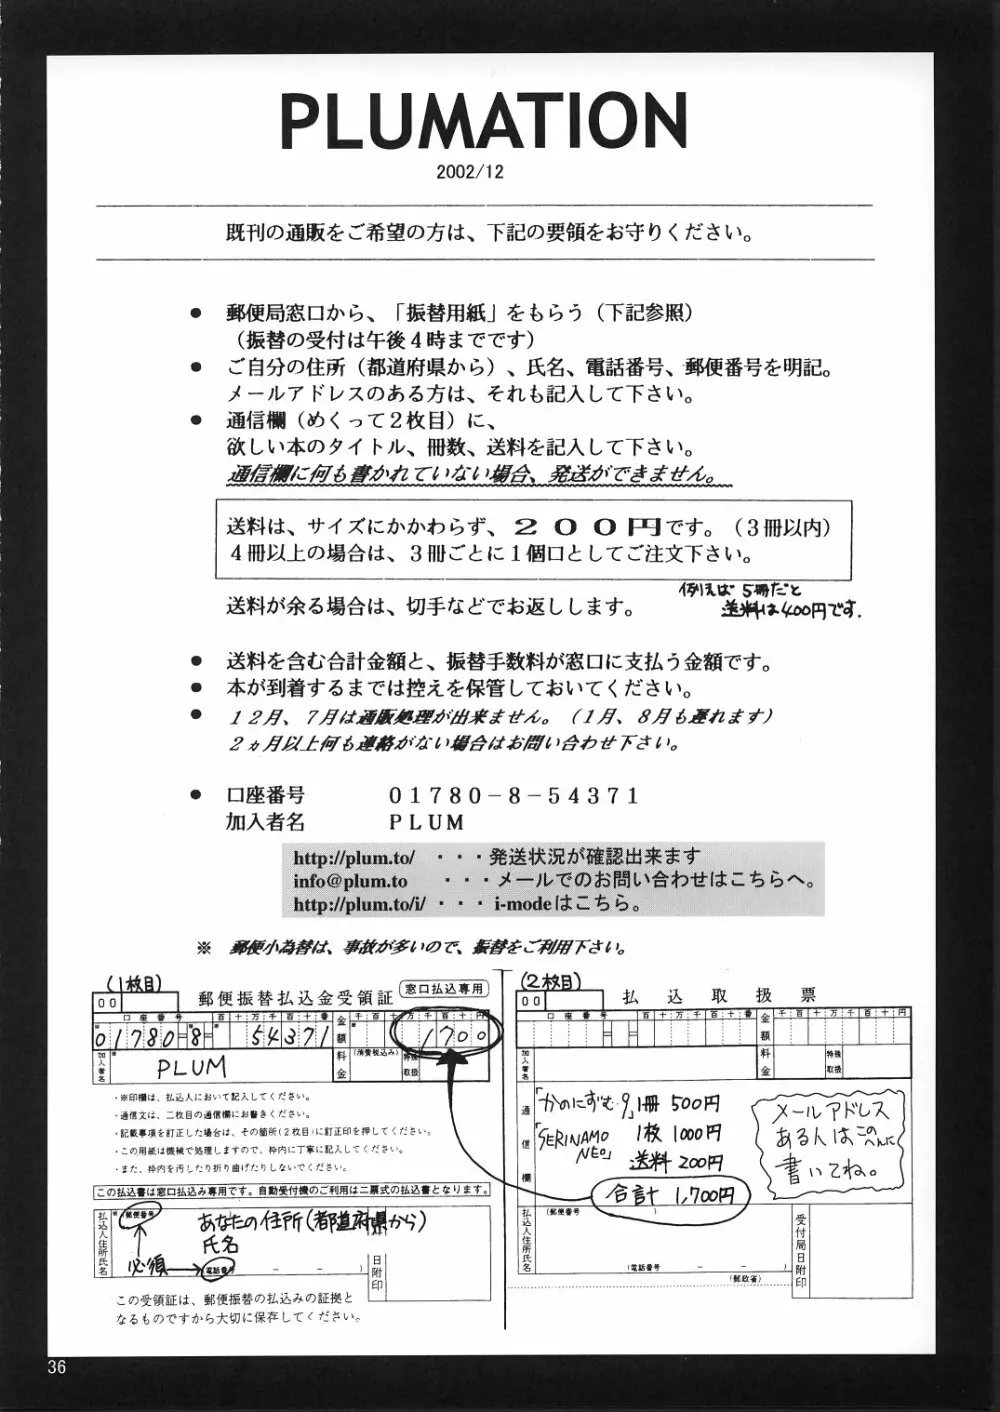 PLUMATION
2002/12
既刊の通販をご希望の方は、下記の要領をお守りください。
● 郵便局窓口から、「振替用紙」をもらう（下記参照）
（振替の受付は午後４時までです）
● ご自分の住所（都道府県から）、氏名、電話番号、郵便番号を明記。
メールアドレスのある方は、それも記入して下さい。
● 通信欄（めくって２枚目）に、
欲しい本のタイトル、冊数、送料を記入して下さい。
通信欄に何も書かれていない場合、発送ができません。
送料は、サイズにかかわらず、２００円です。（３冊以内）
４冊以上の場合は、３冊ごとに１個口としてご注文下さい。
例えば 5冊だと
送料は400円です.
送料が余る場合は、切手などでお返しします。
● 送料を含む合計金額と、振替手数料が窓口に支払う金額です。
● 本が到着するまでは控えを保管しておいてください。
● １２月、７月は通販処理が出来ません。（１月、８月も遅れます）
２ヵ月以上何も連絡がない場合はお問い合わせ下さい。
● 口座番号 ０１７８０－８－５４３７１
加入者名 ＰＬＵＭ
http://plum.to/ ・・・発送状況が確認出来ます
info@plum.to ・・・メールでのお問い合わせはこちらへ。
http://plum.to/i/ ・・・i-modeはこちら。
※ 郵便小為替は、事故が多いので、振替をご利用下さい。
(1枚目)
00
郵便振替払込金受領証
窓口払込専用
口座番号 百十万千百十番
金額
千百十万千百十円
01780-8- 54371
1700
加入者名
PLUM
料金
(消費税込み)
特殊取扱
・※印欄は、払込人において記入してください。
・通信文は、二枚目の通信欄にお書きください。
・記載事項を訂正した場合は、その箇所(2枚目)に訂正印を押してください。
・この用紙は機械で処理しますので、枠内に丁寧に記入してください。
・また、枠内を汚したり折り曲げたりしないでください。
この払込書は窓口払込み専用です。自動受付機のご利用は二票式の払込書となります。
払込人住所氏名
(郵便番号
あなたの住所(都道府県から)
氏名
必須
(電話番号 － － )
日附印
この受領証は、郵便振替の払込みの証拠と
なるものですから大切に保存してください。
(2枚目)
00
払込取扱票
口座番号 百十万千百十番
金額
千百十万千百十円
加入者名
料金
特殊取扱
通信欄
「かのにずむ9」1冊 500円
「SERINAMO NEO」 1枚 1000円
送料 200円
合計 1,700円
メールアドレス
ある人はこのへんに
書いてね。
払込人住所氏名
(郵便番号 )
(電話番号 － － )
受付局日附印
(郵政省)
36